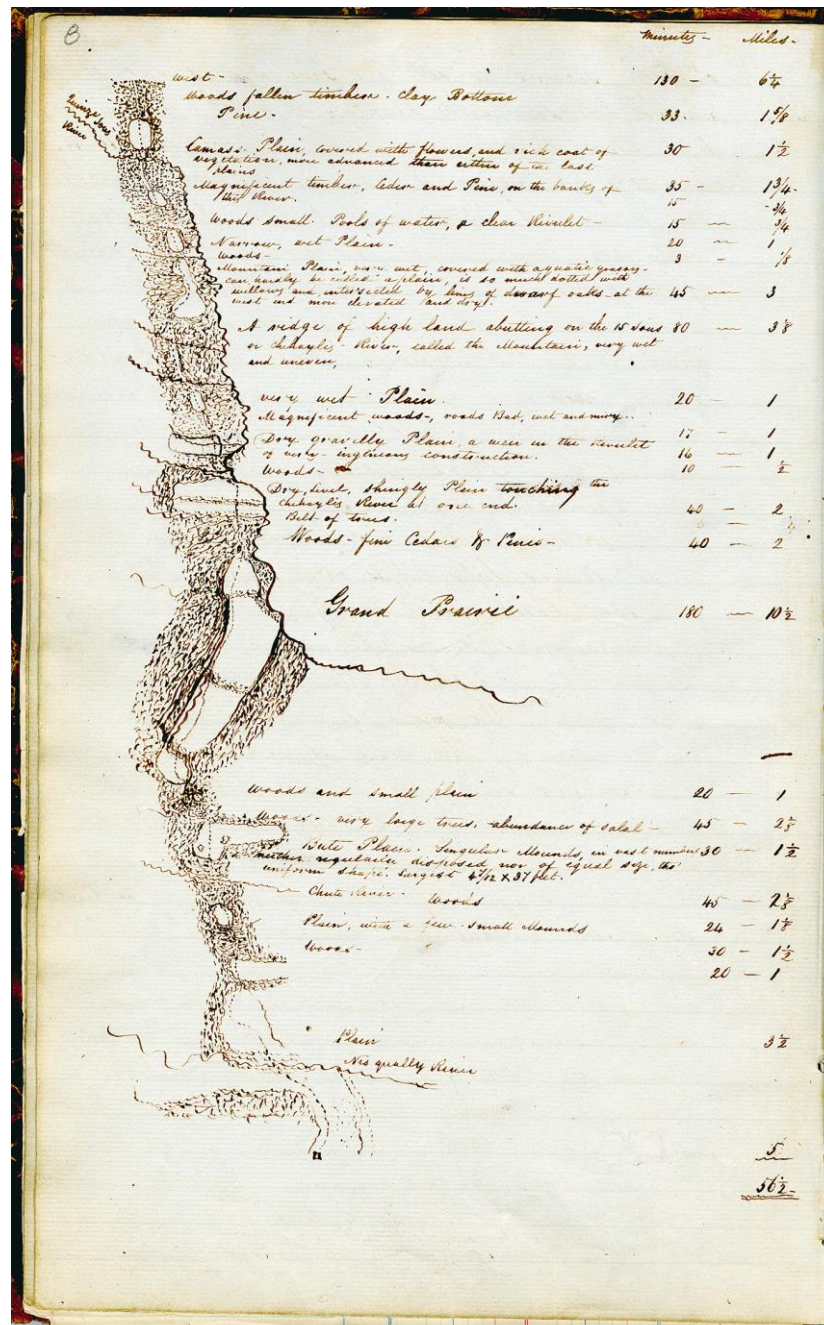 8
Minutes - Miles -
west - 130 - 6¼
Woods fallen timber - clay Bottom
Pine - 33 1⅝
Quinze Sous
River
Camass Plain, covered with flowers, and rich coat of 30 1½
vegetation, more advanced than either of the last
plains
Magnificent timber, Ceder and Pine, on the banks of 35 - 1¾ -
the River. 15 - ¾
Woods small Pools of water, a clear Rivulet - 15 — ¾
Narrow, wet Plain - 20 — 1
Woods - 3 - ⅛
Mountain Plain, very wet, covered with aquatic grasses -
can hardly be called a plain, is so much dotted with
willows and intersected by lines of dwarf oaks - at the 45 — 3
west end more elevated and dry.
A ridge of high land abutting on the 15 Sous 80 — 3
or Chehaylis River, called the Mountain, very wet
and uneven,
very wet Plain. 20 — 1
Magnificent woods -, roads Bad, wet and miry..
Dry gravelly Plain, a weir in the Rivulet 17 - 1
of very - ingenious construction. 16 — 1
Woods - 10 — ½
Dry, level, shingly Plain touching the
Chehaylis River at one end. 40 — 2
Belt of trees.
Woods - fine Cedars & Pines - 40 — 2
Grand Prairie 180 — 10½
woods and small plain 20 — 1
Woods - very large trees, abundance of salal - 45 —
Bute Plain. Singular Mounds, in vast number 30 — 1½
neither regularly disposed nor of equal size, tho'
uniform shape. Largest 37 feet.
Chute River - Woods 45 —
Plain, with a few small Mounds 24 — 1⅛
Woods - 30 — 1½
20 — 1
Plain 3½
Nisqually River
5
56½ -